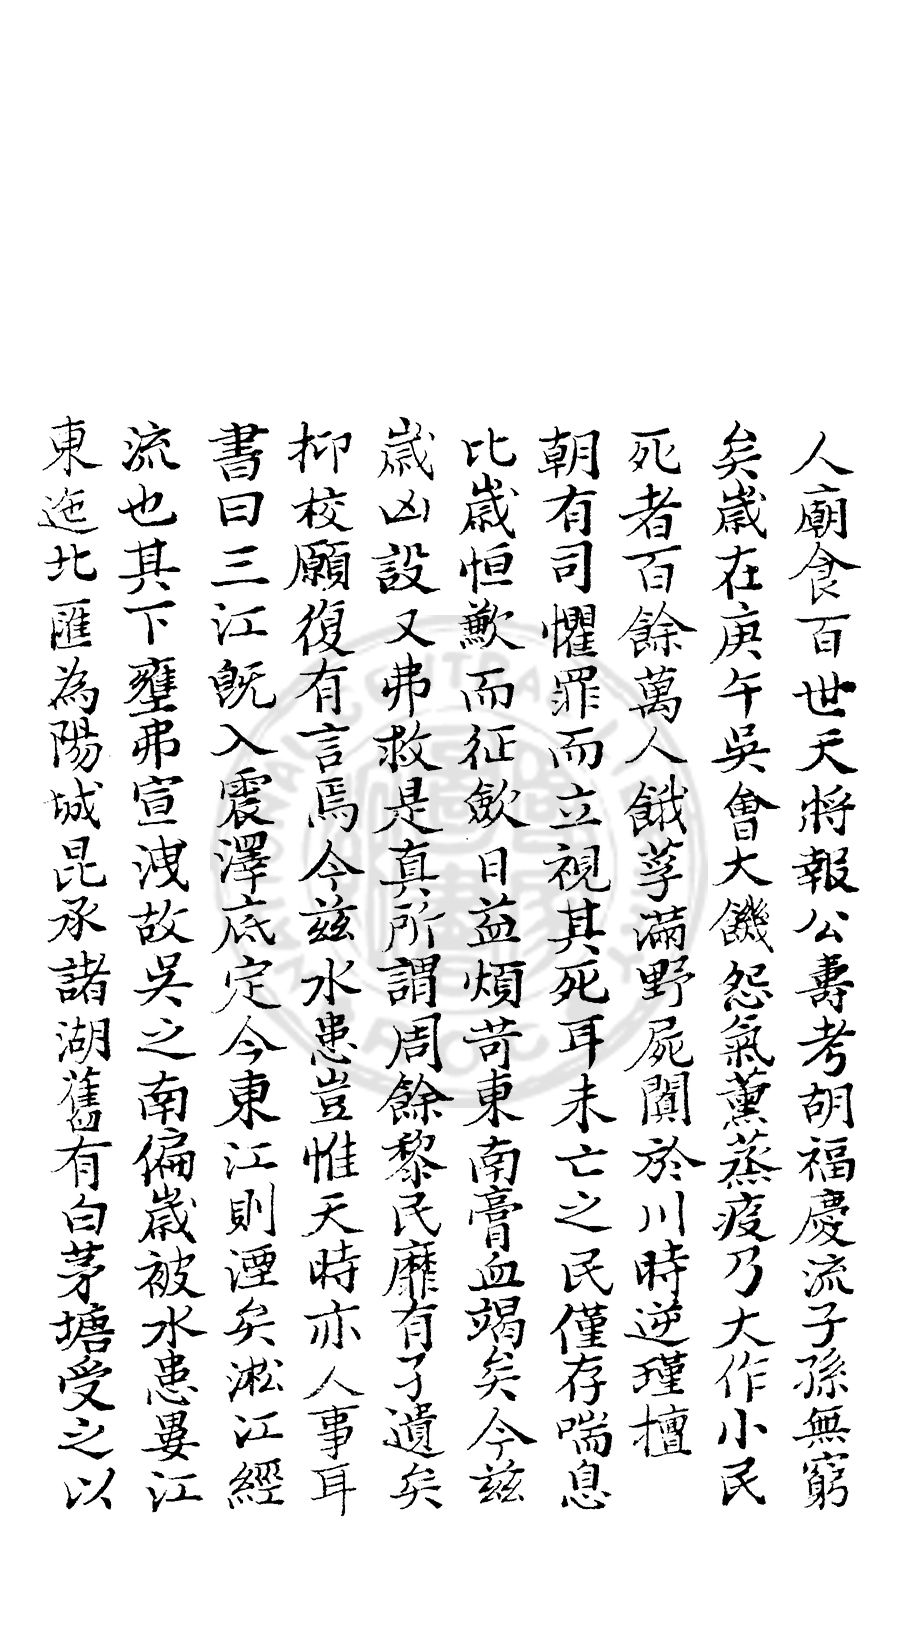 人廟食百世天將報公壽考胡福慶流子孫無窮
矣歲在庚午吳會大饑怨氣薰蒸疫乃大作小民
死者百餘萬人餓莩滿野屍闐於川時逆瑾擅
朝有司懼罪而立視其死耳未亡之民僅存喘息
比歲恒歉而征斂日益煩苛東南膏血竭矣今茲
歲凶設又弗救是真所謂周餘黎民靡有孑遺矣
抑校願復有言焉今茲水患豈惟天時亦人事耳
書曰三江旣入震澤底定今東江則湮矣淞江經
流也其下壅弗宣洩故吳之南偏歲被水患婁江
東迤北匯為陽城昆承諸湖舊有白茅塘受之以